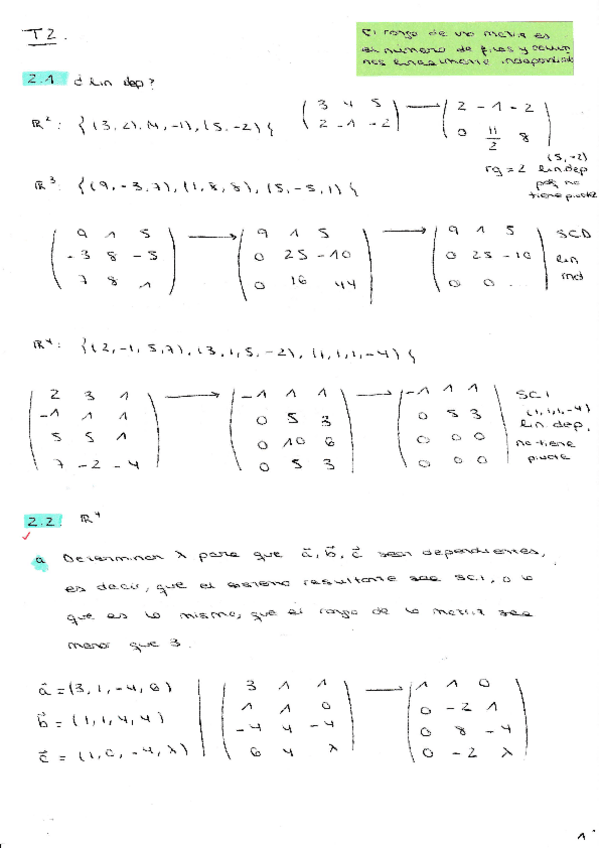 T2.
El rango de una matriz es
el número de filas y colum
nas linealmente independient
2.1 ¿Lin dep?
R²: {(3,2),(4,-1),(5,-2)}
( 3 4 5
2 -1 -2 ) → ( 2 -1 -2
0 11/2 8 )
rg=2 (5,-2)
lin dep
pq no
tiene pivote
R³: {(9,-3,7),(1,8,8),(5,-5,1)}
( 9 1 5
-3 8 -5
7 8 1 ) → ( 9 1 5
0 25 -10
0 16 44 ) → ( 9 1 5
0 25 -10
0 0 ... ) SCD
lin
ind
R⁴: {(2,-1,5,7),(3,1,5,-2),(1,1,1,-4)}
( 2 3 1
-1 1 1
5 5 1
7 -2 -4 ) → ( -1 1 1
0 5 3
0 10 6
0 5 3 ) → ( -1 1 1
0 5 3
0 0 0
0 0 0 ) SCI
(1,1,1,-4)
lin. dep.
no tiene
pivote
2.2 R⁴
a Determinar λ para que a⃗, b⃗, c⃗ sean dependientes,
es decir, que el sistema resultante sea SCI, o lo
que es lo mismo, que el rango de la matriz sea
menor que 3.
a⃗ = (3,1,-4,6)
b⃗ = (1,1,4,4)
c⃗ = (1,0,-4,λ)
( 3 1 1
1 1 0
-4 4 -4
6 4 λ ) → ( 1 1 0
0 -2 1
0 8 -4
0 -2 λ )
1